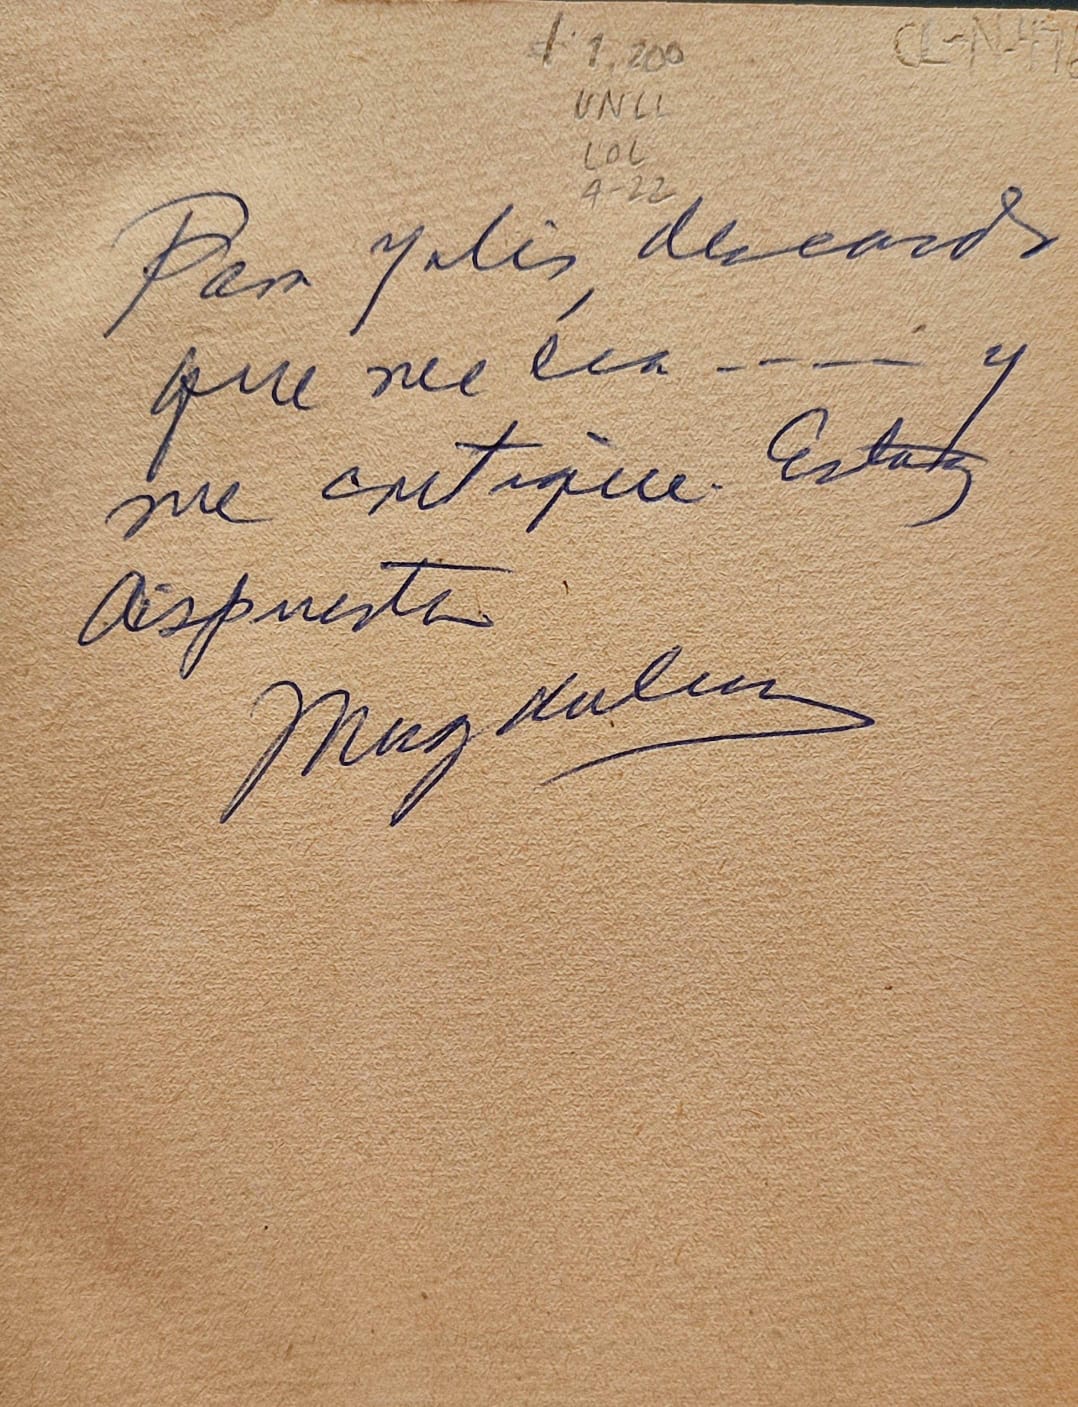 $ 1,200
CL-N-476
UNLL
LOL
A-22
Para Yulis, deseando
que me lea ---- y
me critique. Estoy
dispuesta
Magdalena